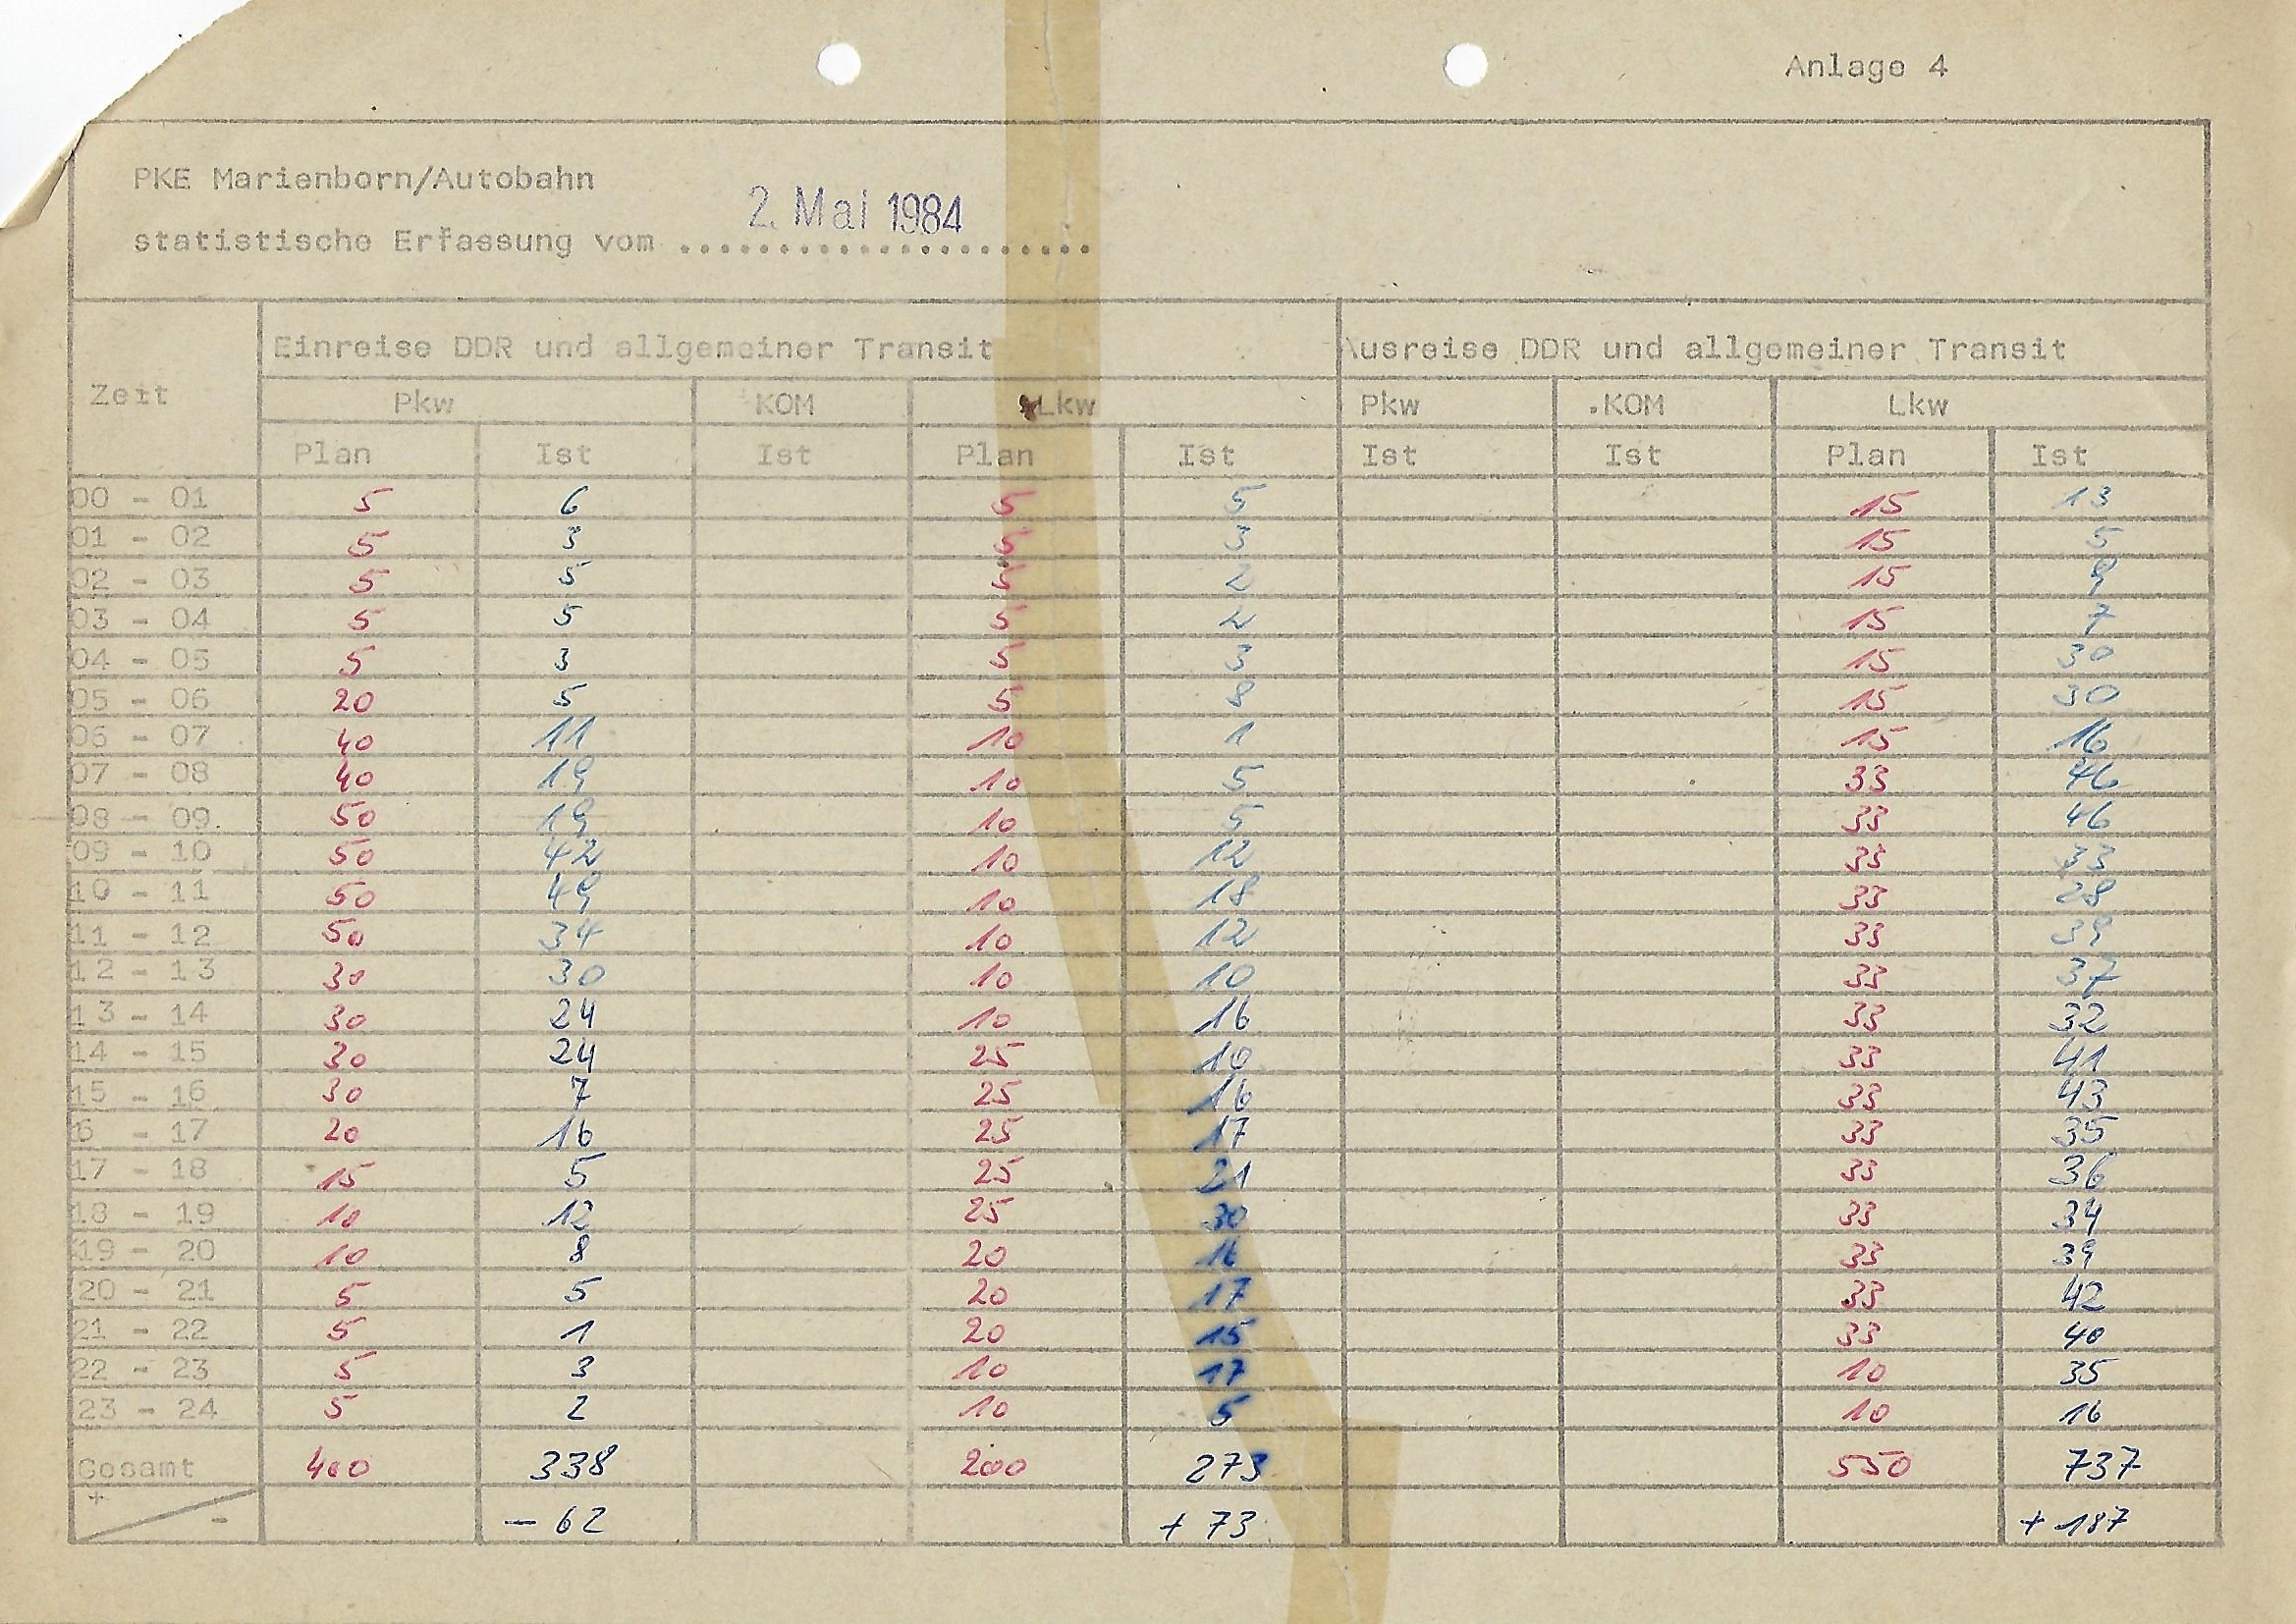 Anlage 4
PKE Marienborn/Autobahn
2. Mai 1984
statistische Erfassung vom .....................
Zeit
Einreise DDR und allgemeiner Transit Ausreise DDR und allgemeiner Transit
Pkw KOM Lkw Pkw .KOM Lkw
Plan Ist Ist Plan Ist Ist Ist Plan Ist
00 - 01 5 6 5 5 15 13
01 - 02 5 3 5 3 15 5
02 - 03 5 5 5 2 15 9
03 - 04 5 5 5 2 15 7
04 - 05 5 3 5 3 15 30
05 - 06 20 5 5 8 15 30
06 - 07 40 11 10 1 15 16
07 - 08 40 19 10 5 33 46
08 - 09 50 19 10 5 33 46
09 - 10 50 42 10 12 33 33
10 - 11 50 49 10 18 33 28
11 - 12 50 34 10 12 33 39
12 - 13 30 30 10 10 33 37
13 - 14 30 24 10 16 33 32
14 - 15 30 24 25 10 33 41
15 - 16 30 7 25 16 33 43
6 - 17 20 16 25 17 33 35
17 - 18 15 5 25 21 33 36
18 - 19 10 12 25 30 33 34
19 - 20 10 8 20 16 33 39
20 - 21 5 5 20 17 33 42
21 - 22 5 1 20 15 33 40
22 - 23 5 3 10 17 10 35
23 - 24 5 2 10 5 10 16
Gesamt 400 338 200 273 550 737
+ - - 62 + 73 + 187